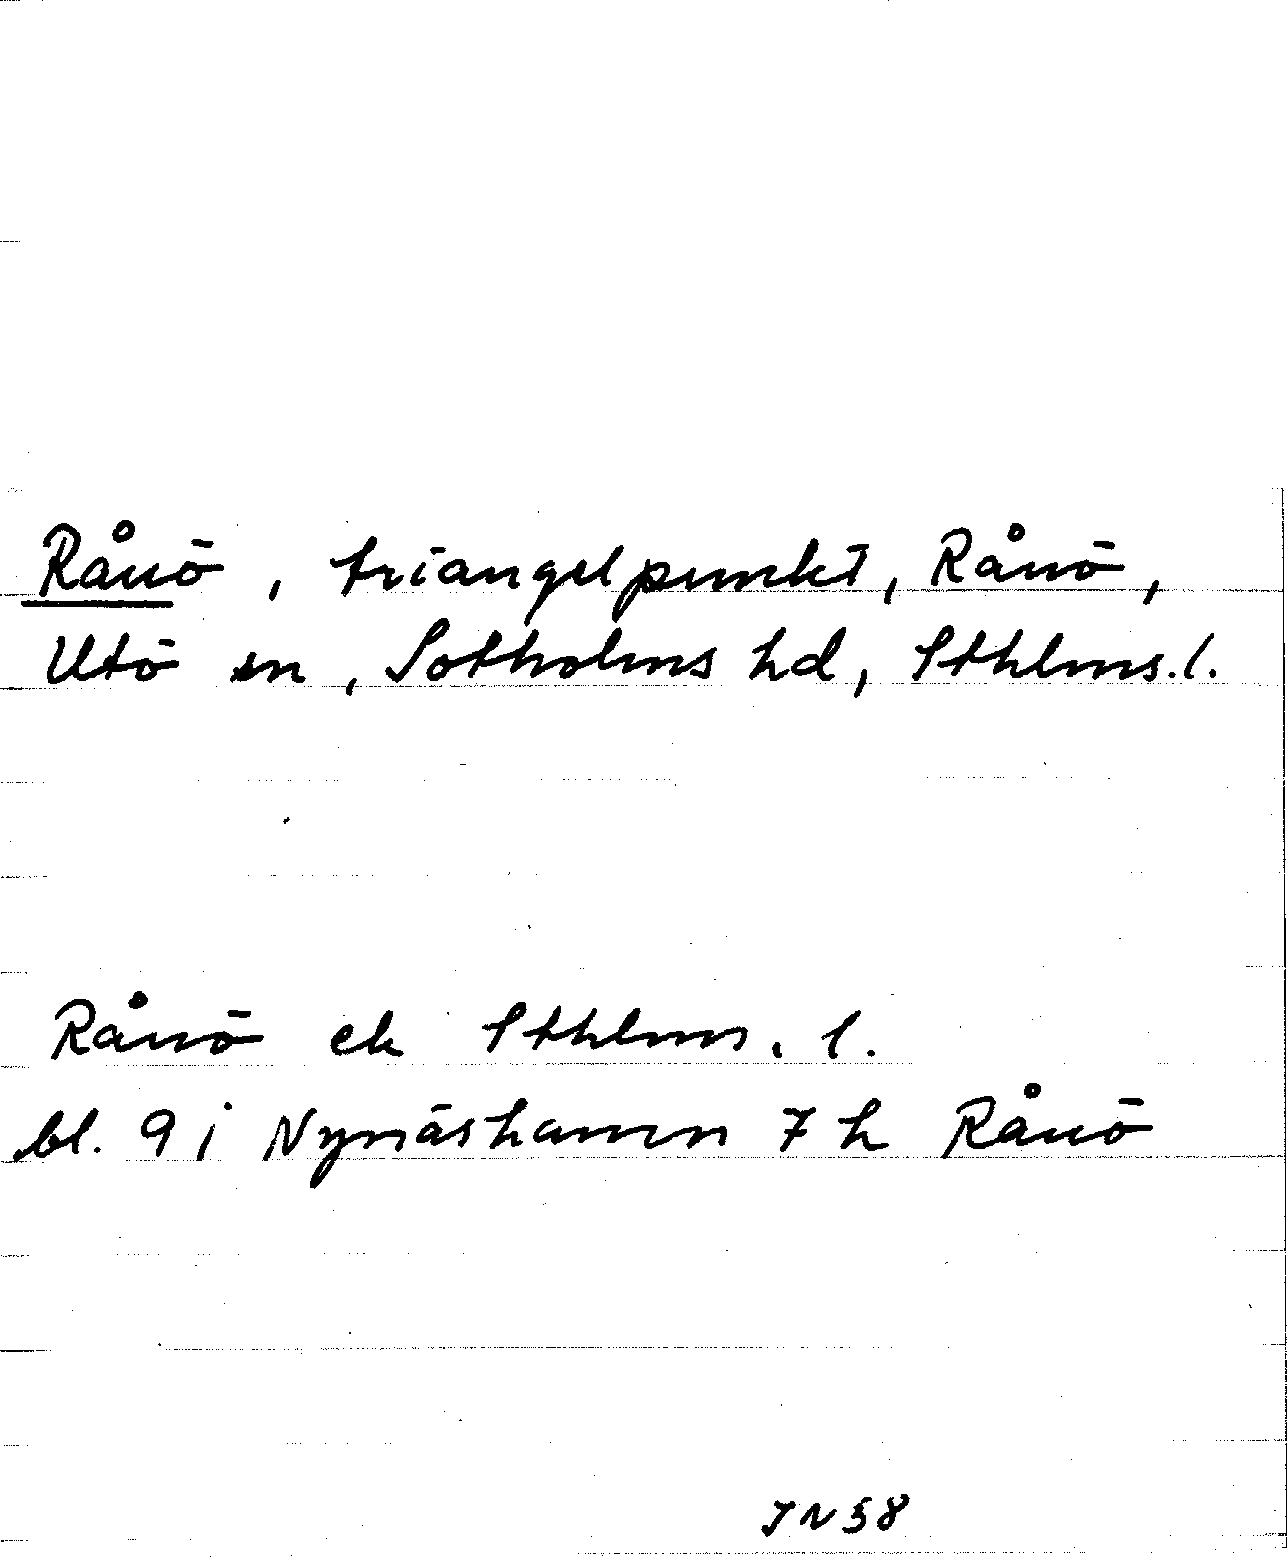 Rånö, triangelpunkt, Rånö,
Utö sn, Sotholms hd, Sthlms. l.
Rånö ek Sthlms. l.
bl. 9 i Nynäshamn 7 h Rånö
JN58